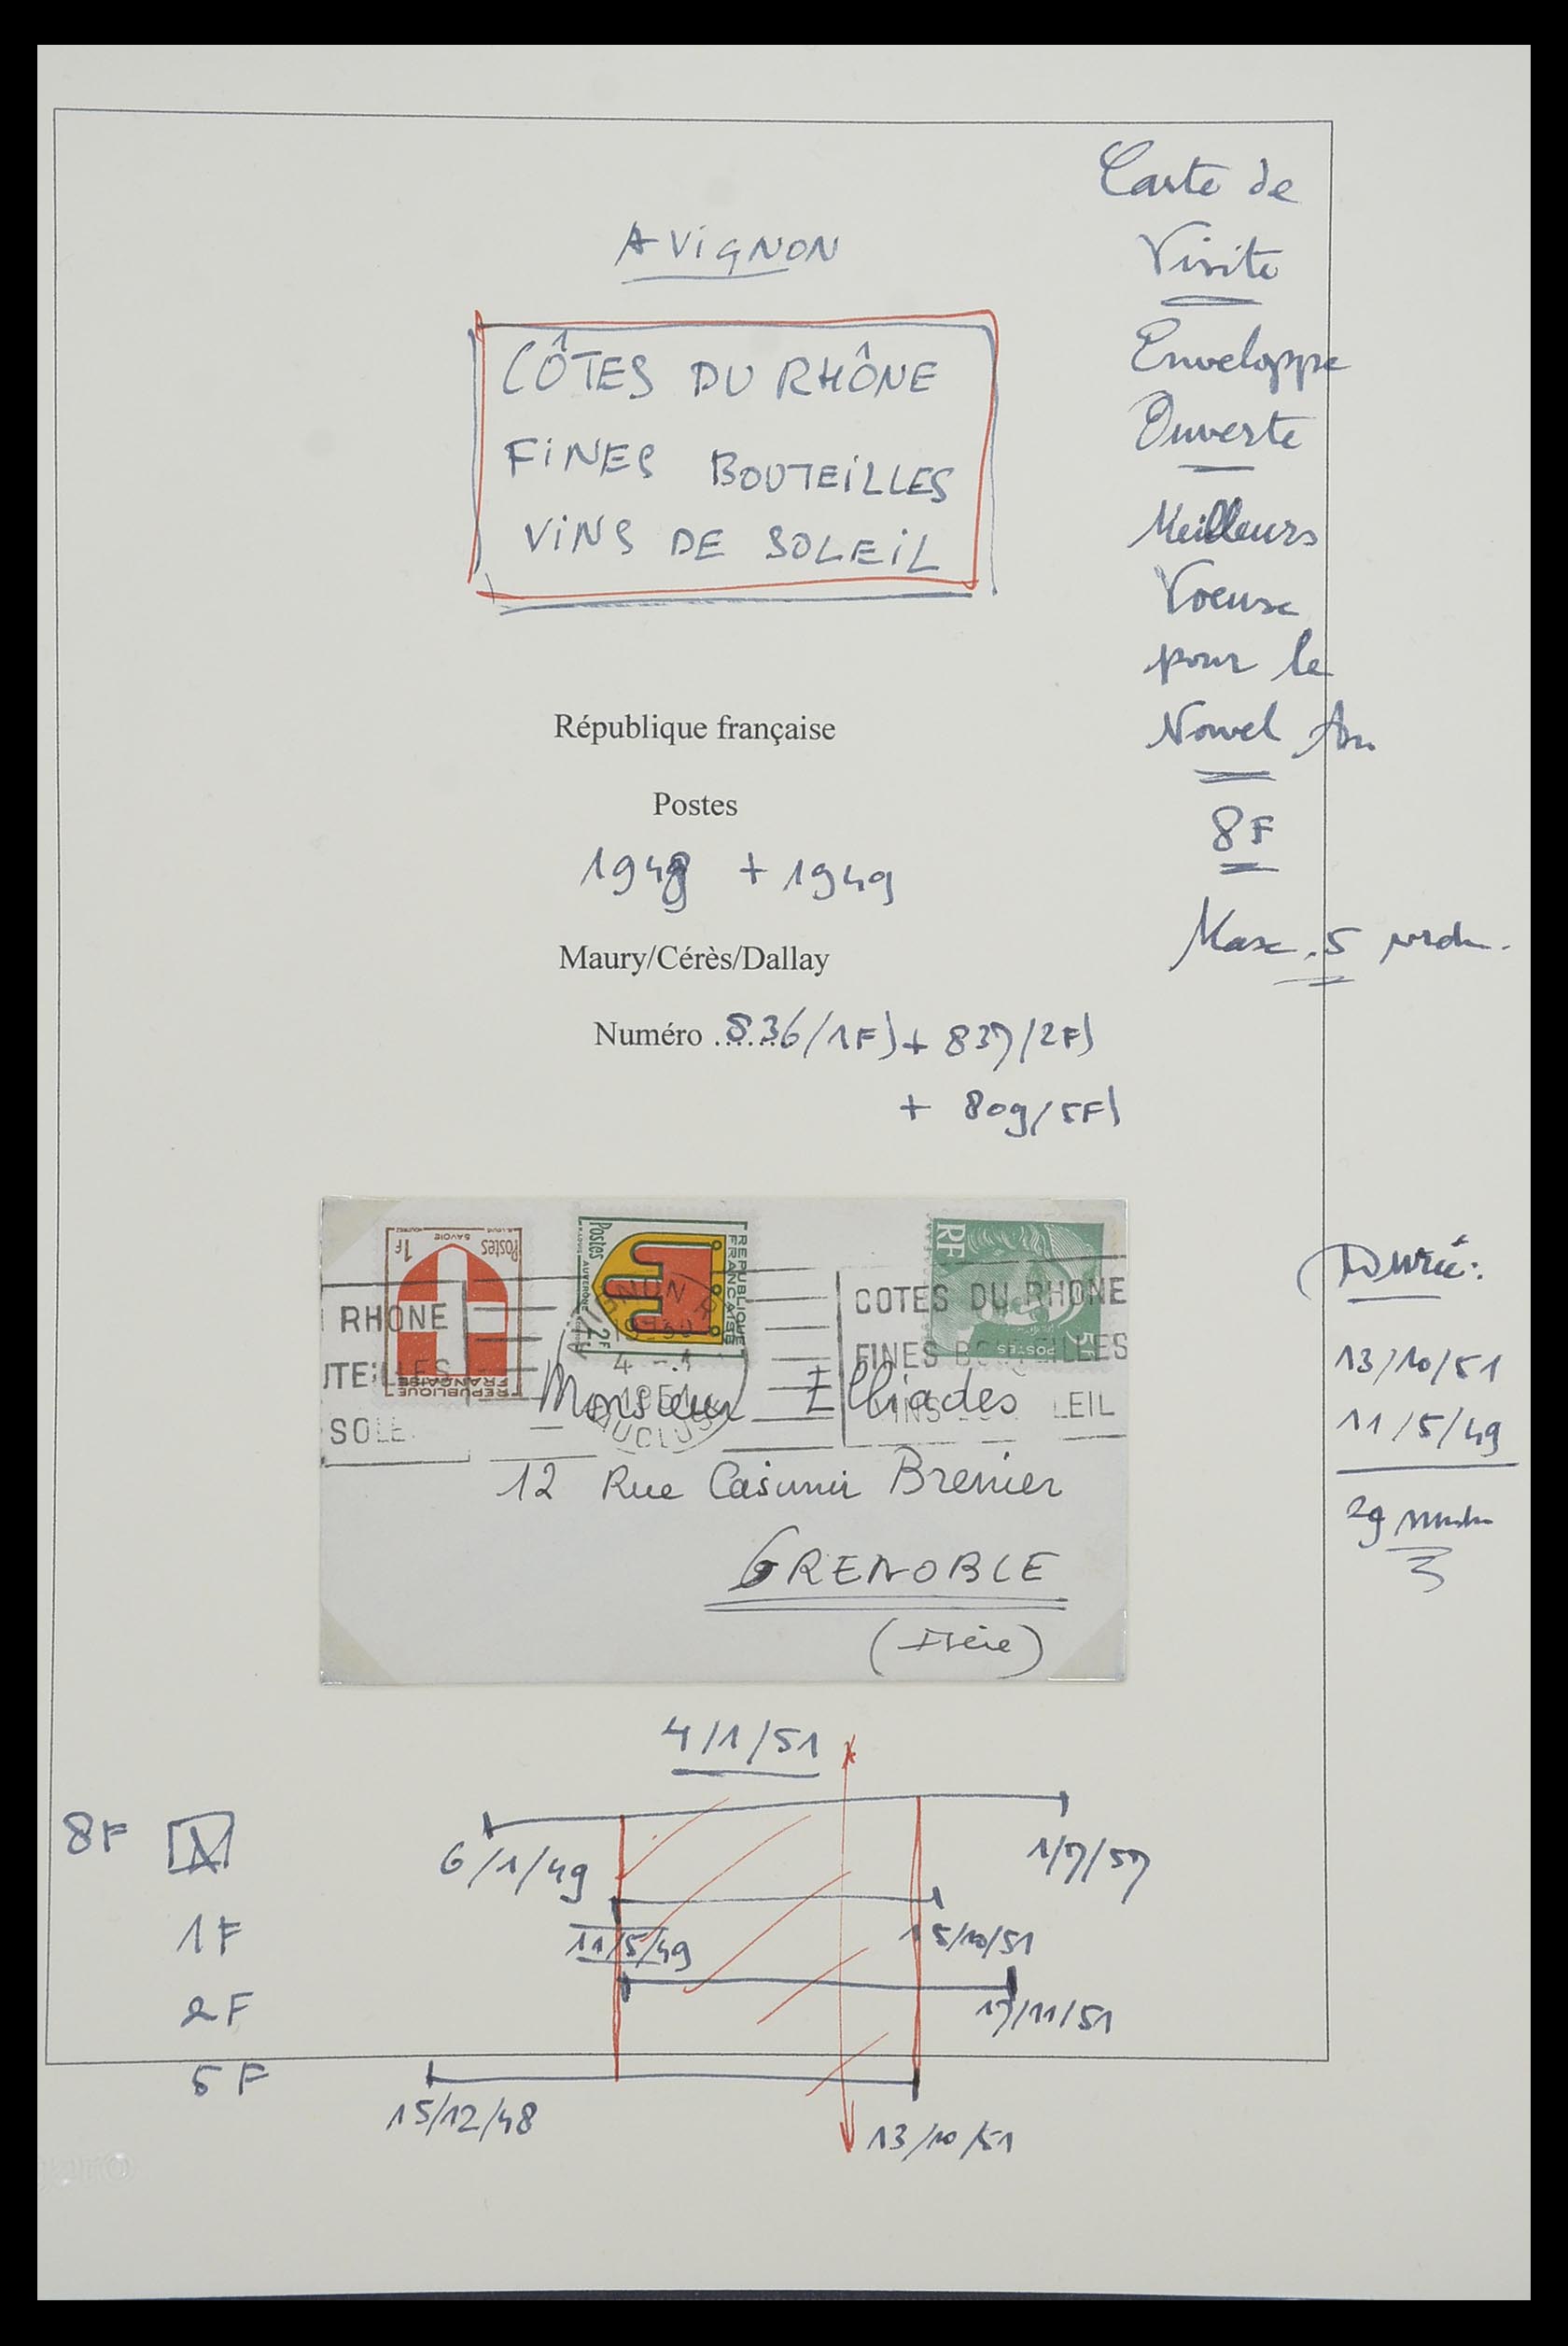 AVIGNON
CÔTES DU RHÔNE
FINES BOUTEILLES
VINS DE SOLEIL
Carte de
Visite
Enveloppe
Ouverte
Meilleurs
Voeux
pour le
Nouvel An
8F
Max. 5
République française
Postes
1948 + 1949
Maury/Cérès/Dallay
Numéro ......836/1F) + 837/2F)
+ 809/5F)
SAVOIE
Postes 1F
REPUBLIQUE
FRANÇAISE
Postes
AUVERGNE
2F
REPUBLIQUE
FRANCAISE
RF
POSTES
RHONE
SOLE
4 - 1
COTES DU RHONE
FINES BOUTEILLES
VINS LEIL
Monsieur Elliades
12 Rue Casimir Brenier
GRENOBLE
(Isère)
Durée:
13/10/51
11/5/49
29
4/1/51
8F
6/1/49
1/7/57
1F
11/5/49
15/10/51
2F
17/11/51
5F
15/12/48
13/10/51